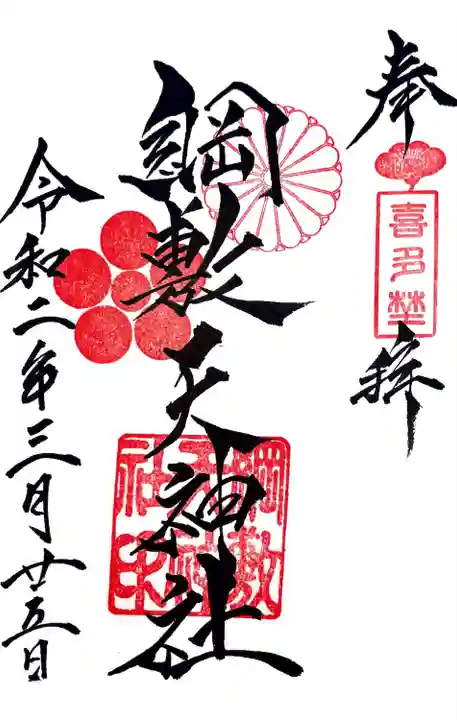 奉拝
喜多埜
綱敷天神社
綱敷天神社
令和二年三月廿五日